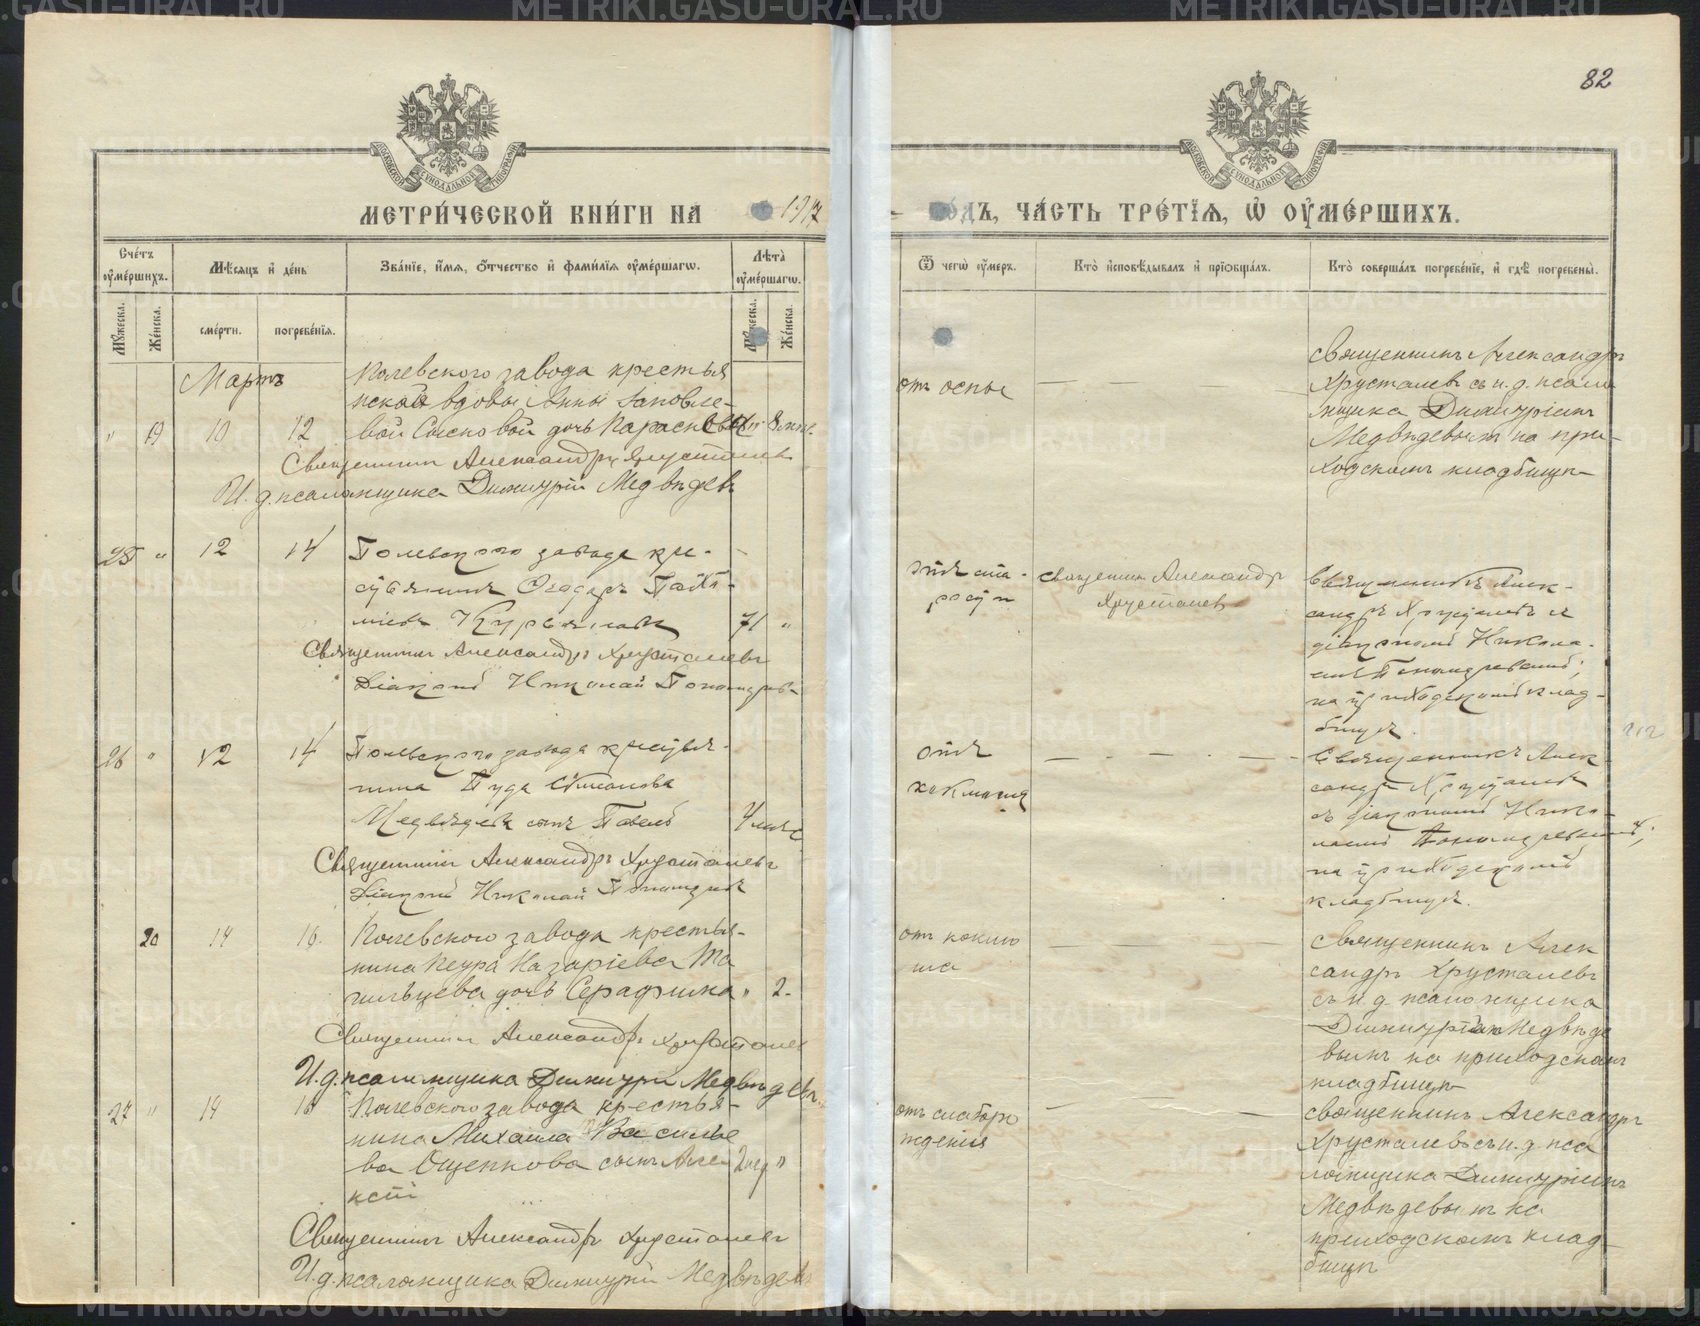 82
МЕТРИ́ЧЕСКОЙ КНИ́ГИ НА 1917 ГО́ДЪ, ЧА́СТЬ ТРЕ́ТІЯ, Ѽ ОУ҆МЕ́РШИХЪ.
Сче́тъ оу҆ме́ршихъ.
Мѣ́сяцъ и҆ де́нь
Зва́нїе, и҆́мя, ѻ҆́тчество и҆ фами́лїя оу҆ме́ршагѡ.
Лѣ́та оу҆ме́ршагѡ.
Ѿ чегѡ̀ оу҆́меръ.
Кто̀ и҆сповѣ́дывалъ и҆ прїѻбща́лъ.
Кто̀ соверша́лъ погребе́нїе, и҆ гдѣ̀ погребены̀.
Мꙋ́жеска.
Же́нска.
сме́рти.
погребе́нїя.
Мꙋ́жеска.
Же́нска.
Мартъ
Полевского завода крестья
нской вдовы Анны Яковле-
" 19 10 12 вой Сысковой дочь Параскева 8 мѣс.
Священникъ Александръ Хрусталевъ
И. д. псаломщика Димитрій Медвѣдевъ
отъ оспы
Священникъ Александръ
Хрусталевъ съ и. д. псало
мщика Димитріемъ
Медвѣдевымъ на при-
ходскомъ кладбищѣ
25 " 12 14 Полевского завода кре-
стьянинъ Ѳеодоръ
71 "
Священникъ Александръ Хрусталевъ
Діаконъ Николай Пономаревъ
отъ ста-
рости
Священникъ Александръ
Хрусталевъ
Священникъ Алек-
сандръ Хрусталевъ и
діакономъ Никола-
емъ Пономаревымъ,
на приходскомъ клад-
бищѣ.
26 " 12 14 Полевского завода крестья-
нина Пуда Симонова
Медвѣдева сынъ Павелъ 4 мѣс
Священникъ Александръ Хрусталевъ
Діаконъ Николай Пономаревъ
отъ
коклюша
Священникъ Алек
сандръ Хрусталевъ
съ діакономъ Нико-
лаемъ Пономаревымъ,
на приходскомъ
кладбищѣ.
20 14 16. Полевского завода крестья-
нина Петра Назаріева Та
гильцева дочь Серафима " 2-
Священникъ Александръ Хрусталев
И. д. псаломщика Димитрій Медвѣдевъ
отъ коклю
ша
Священникъ Алек
сандръ Хрусталевъ
съ и. д. псаломщика
Димитріемъ Медвѣде
вымъ на приходскомъ
кладбищѣ
27 " 14 16 Полевского завода крестья-
нина Михаила Василье
ва Ощепкова сынъ Але 2 нед "
ксѣй
Священникъ Александръ Хрусталевъ
И. д. псаломщика Димитрій Медвѣдевъ
отъ слаборо
жденія
Священникъ Александръ
Хрусталевъ съ и. д. пса
ломщика Димитріемъ
Медвѣдевымъ на
приходскомъ клад-
бищѣ
METRIKI.GASU-URAL.RU